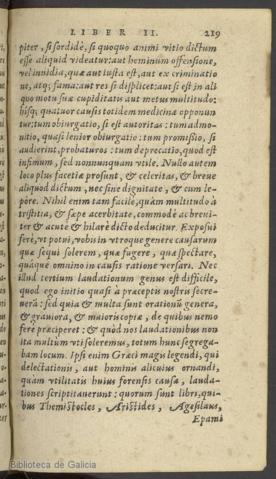 LIBER II. 219
piter, si sordidè, si quoquo animi vitio dictum
esse aliquid videatur: aut hominum offensione,
vel inuidia, quæ aut iusta est, aut ex criminatio
ne, atq; fama: aut res si displicet: aut si est in ali
quo motu suæ cupiditatis aut metus multitudo:
hisq; quatuor causis totidem medicinæ opponun
tur: tum obiurgatio, si est autoritas: tum admo-
nitio, quasi lenior obiurgatio: tum promissio, si
audierint, probaturos: tum deprecatio, quod est
infimum, sed nonnunquam vtile. Nullo autem
loco plus facetiæ prosunt, & celeritas, & breue
aliquod dictum, nec sine dignitate, & cum le-
pôre. Nihil enim tam facile, quàm multitudo à
tristitia, & sæpe acerbitate, commodè ac breui-
ter & acutè & hilarè dicto deducitur. Exposui
ferè, vt potui, vobis in vtroque genere causarum
quæ sequi solerem, quæ fugere, quæ spectare,
quáque omnino in causis ratione versari. Nec
illud tertium laudationum genus est difficile,
quod ego initio quasi à præceptis nostris secre-
ueră: sed quia & multa sunt orationū genera,
& grauiora, & maioris copiæ, de quibus nemo
ferè præciperet: & quòd nos laudationibus non
ita multùm vti soleremus, totum hunc segrega-
bam locum. Ipsi enim Græci magis legendi, qui
delectationis, aut hominis alicuius ornandi,
quàm vtilitatis huius forensis causa, lauda-
tiones scriptitauerunt: quorum sunt libri, qui-
bus Themistocles, Aristides, Agesilaus,
Epami
Biblioteca de Galicia